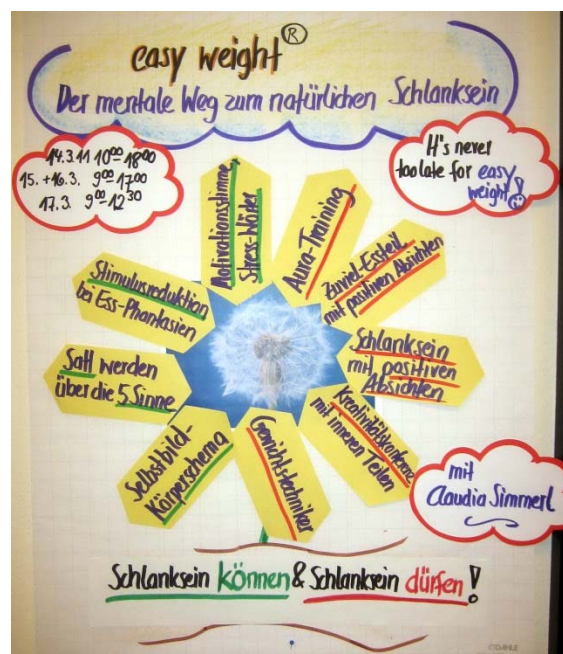 easy weight ®
Der mentale Weg zum natürlichen Schlanksein
14.3.11 10⁰⁰-18⁰⁰
15.+16.3. 9⁰⁰-17⁰⁰
17.3. 9⁰⁰-12³⁰
It's never
too late for easy
weight!
Motivationsstimme
Stress-Wörter
Aura-Training
Zuviel-Essteil
mit positiven Absichten
Schlanksein
mit positiven
Absichten
Kreativitätskonferenz
mit inneren Teilen
Gewichts-techniker
Selbstbild-
Körperschema
Satt werden
über die 5 Sinne
Stimulusreduktion
bei Ess-Phantasien
mit
Claudia Simmerl
Schlanksein können & Schlanksein dürfen!
©DAHLE